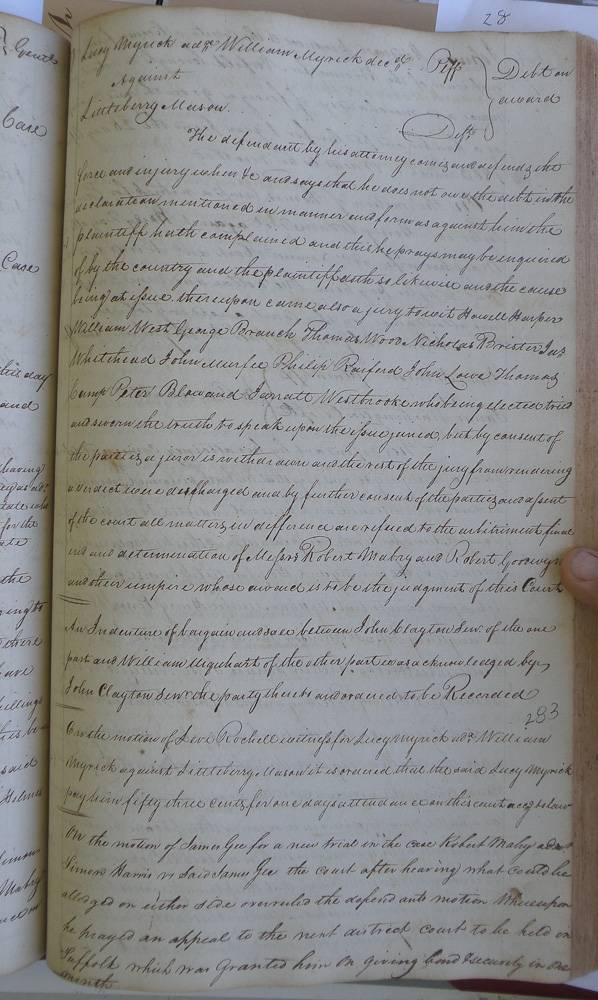 28
Lucy Myrick adx William Myrick decd Plff
Against
Debt on
award
Littleberry Mason Deft
The defendant by his attorney comes and defends the
force and injury when &c and says that he does not owe the debt in the
declaration mentioned in manner and form as against him the
plaintiff hath complained and this he prays may be enquired
of by the country and the plaintiff doth so likewise and the cause
being at issue thereupon came also a jury towit Howell Harper
William West George Branch Thomas Wood Nicholas Brister Jas
Whitehead John Murfee Philip Raiford John Lowe Thomas
Camp Peter Blow and Jarratt Westbrooke who being elected tried
and sworn the truth to speak upon the issue joined, but by consent of
the parties a juror is withdrawn and the rest of the jury from rendering
a verdict were discharged and by further consent of the parties and assent
of the court all matters in difference are refered to the arbitriment final
end and determination of Messrs Robert Mabry and Robert Goodwyn
and their umpire whose award is to be the judgment of this Court
An Indenture of bargain and sale between John Clayton Senr. of the one
part and William Urquhart of the other part was acknowledged by
John Clayton Senr the party thereto and ordered to be Recorded
283
On the motion of Levi Rochell a witness for Lucy Myrick adx William
Myrick against Littleberry Mason it is ordered that the said Lucy Myrick
pay him fifty three cents for one days attendance on this court accg to law
On the motion of James Gee for a new trial in the case Robert Mabry
Simon Harris vs said James Gee the court after hearing what could be
alledged on either side overruled the defendants motion Whereupon
he prayed an appeal to the next district court to be held in
Suffolk which was granted him on giving bond & security in one
month
Case
Case
day
and
having
for the
the
there
have
said
Holmes
Mabry